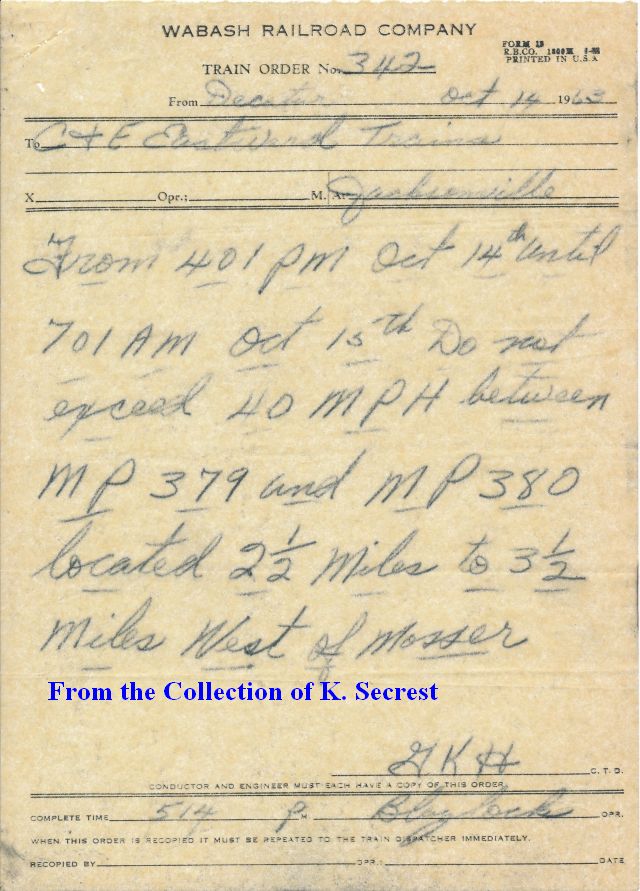 WABASH RAILROAD COMPANY
FORM 19
R.B.CO. 1800M
PRINTED IN U.S.A
TRAIN ORDER No. 342
From Decatur Oct 14 1963
To C+E Eastward Trains
X Opr.; M. At Jacksonville
From 401 PM Oct 14th until
701 AM Oct 15th Do not
exceed 40 MPH between
MP 379 and MP 380
located 2½ Miles to 3½
Miles West of Mosser
From the Collection of K. Secrest
GKH C. T. D.
CONDUCTOR AND ENGINEER MUST EACH HAVE A COPY OF THIS ORDER.
COMPLETE TIME 514 P M. Blaylock OPR.
WHEN THIS ORDER IS RECOPIED IT MUST BE REPEATED TO THE TRAIN DISPATCHER IMMEDIATELY.
RECOPIED BY OPR.: DATE